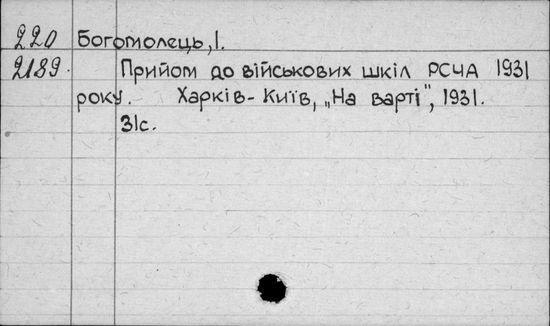 220 Богомолець, І.
2189. Прийом до військових шкіл РСЧА 1931
року. Харків-Київ, „На варті", 1931.
31с.